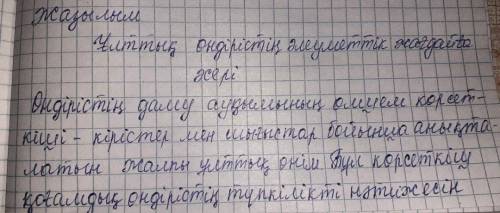 Жазылым
Ұлттық өндірістің әлеуметтік жағдайға
әсері
Өндірістің даму ауқымының өлшем көрсет-
кіші - кірістер мен шығыстар бойынша анықта-
латын жалпы ұлттық өнім. Бұл көрсеткіш
қоғамдық өндірістің түпкілікті нәтижесін